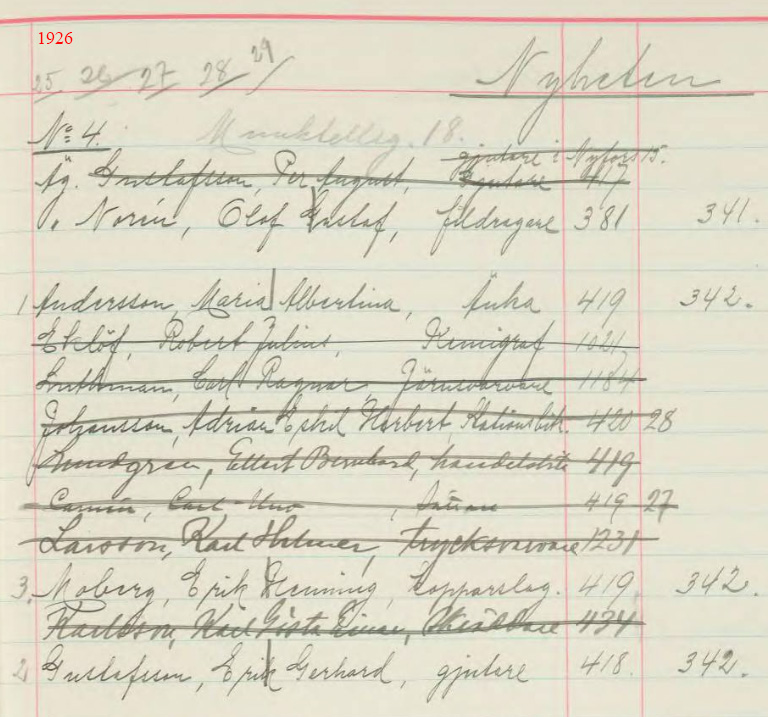 1926
25 26 27 28 29
Nyheten
No 4. Munktellsg. 18.
gjutare i Nyfors 15.
Äg. Gustafsson, Per August, Gjutare 417
" Norén, Olof Gustaf, fildragare 381 341.
1 Andersson, Maria Albertina, Änka 419 342.
Eklöf, Robert Julius, Kemigraf 1021
Carl Ragnar Järnsvarvare 1184
Johansson, Adrian Eskil Herbert, Stationsbit. 420 28
Lundgren, Ellert Bernhard, 419
Carl-Uno, 419 27
Larsson, Karl Helmer, Trycksvarvare 1231
3. Moberg, Erik Henning, kopparslag. 419 342.
Karlsson, Karl Gösta Einar, 434
2 Gustafsson, Erik Gerhard, gjutare 418. 342.